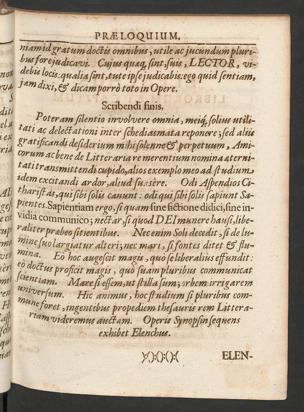 PRÆLOQUIUM.
niam id gratum doctis omnibus, utile ac jucundum pluri-
bus fore judicavi. Cujus quaq, sint, suis, LECTOR, vi-
debis locis: qualia sint, tute ipse judicabis: ego quid sentiam,
jam dixi, & dicam porrò toto in Opere.
Scribendi finis.
Poteram silentio involvere omnia, meiq, solius utili-
tati ac delectationi inter schediasmata reponere; sed aliis
gratificandi desiderium mihi solenne & perpetuum, Ami-
corum ac bene de Litteraria re merentium nomina æterni-
tati transmittendi cupido, alios exemplo meo ad studium
idem excitandi ardor, aliud suasere. Odi Aspendios Ci-
tharistas, qui sibi soli canunt: odi qui sibi solis sapiunt Sa-
pientes. Sapientiam ergo, si quam sine fictione didici, sine in-
vidia communico; nectar, si quod DEI munere hausi, libe-
raliter præbeo sitientibus. Nec enim Soli decedit, si de lu-
mine suo largiatur alteri; nec mari, si fontes ditet & flu-
mina. Eò hoc augescit magis, quò se liberaliùs effundit:
eò doctus proficit magis, quò suam pluribus communicat
scientiam. Mare si essem, ut stilla sum; orbem irrigarem
universum. Hic animus, hoc studium si pluribus com-
mune foret, ingentibus propediem thesauris rem Littera-
riam videremus auctam. Operis Synopsin sequens
exhibet Elenchus.
ELEN-